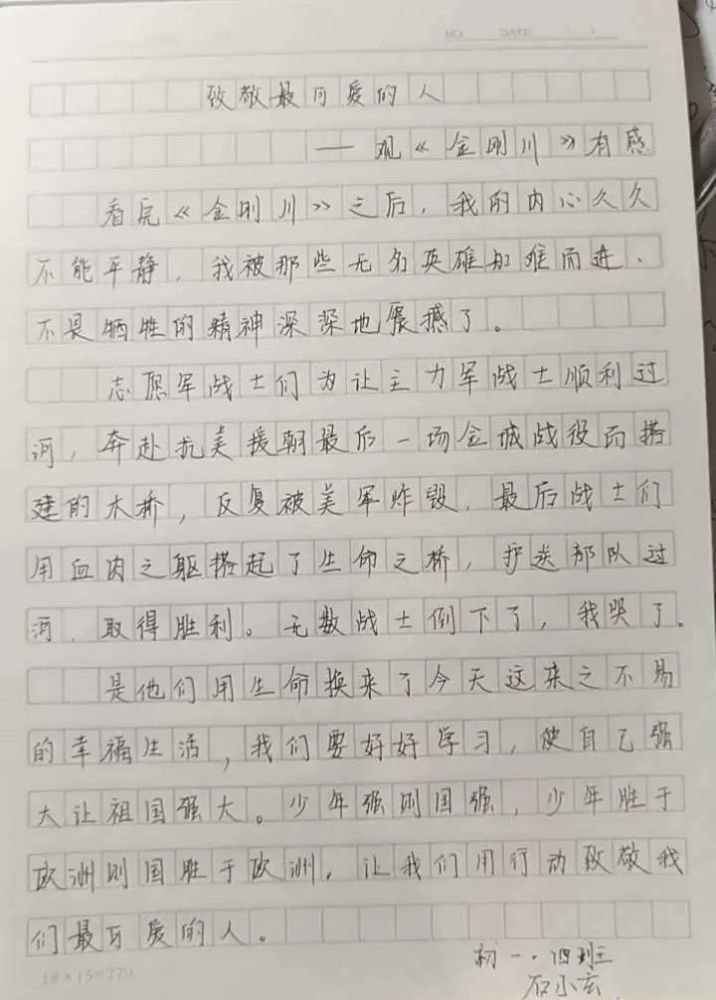 NO. DATE
致敬最可爱的人
——观《金刚川》有感
看完《金刚川》之后，我的内心久久
不能平静，我被那些无名英雄知难而进、
不畏牺牲的精神深深地震撼了。
志愿军战士们为让主力军战士顺利过
河，奔赴抗美援朝最后一场金城战役而搭
建的木桥，反复被美军炸毁，最后战士们
用血肉之躯搭起了生命之桥，护送部队过
河，取得胜利。无数战士倒下了，我哭了。
是他们用生命换来了今天这来之不易
的幸福生活，我们要好好学习，使自己强
大让祖国强大。少年强则国强，少年胜于
欧洲则国胜于欧洲，让我们用行动致敬我
们最可爱的人。
初一·四班
石小玄